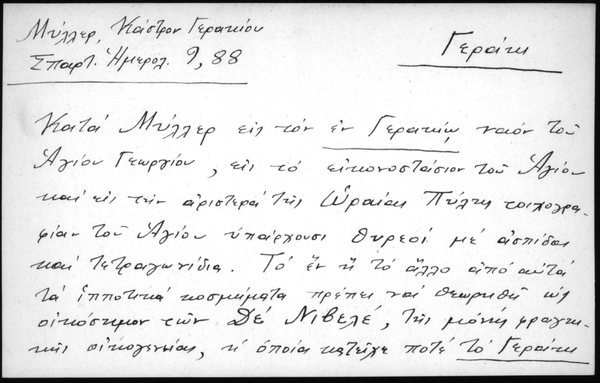 Μύλλερ, Κάστρον Γερακίου
Σπαρτ. Ἡμερολ. 9, 88
Γεράκι
Κατά Μύλλερ εἰς τόν ἐν Γερακίῳ ναόν τοῦ
Ἁγίου Γεωργίου, εἰς τό εἰκονοστάσιον τοῦ Ἁγίου
καί εἰς τήν ἀριστερά τῆς Ὡραίας Πύλης τοιχογρα-
φίαν τοῦ Ἁγίου ὑπάρχουσι θυρεοί μέ ἀσπίδας
καί τετραγωνίδια. Τό ἕν ἤ τό ἄλλο ἀπό αὐτά
τά ἱπποτικά κοσμήματα πρέπει νά θεωρηθῇ ὡς
οἰκόσημον τῶν Δέ Νιβελέ, τῆς μόνης φραγκι-
κῆς οἰκογενείας, ἡ ὁποία κατεῖχε ποτέ τό Γεράκι